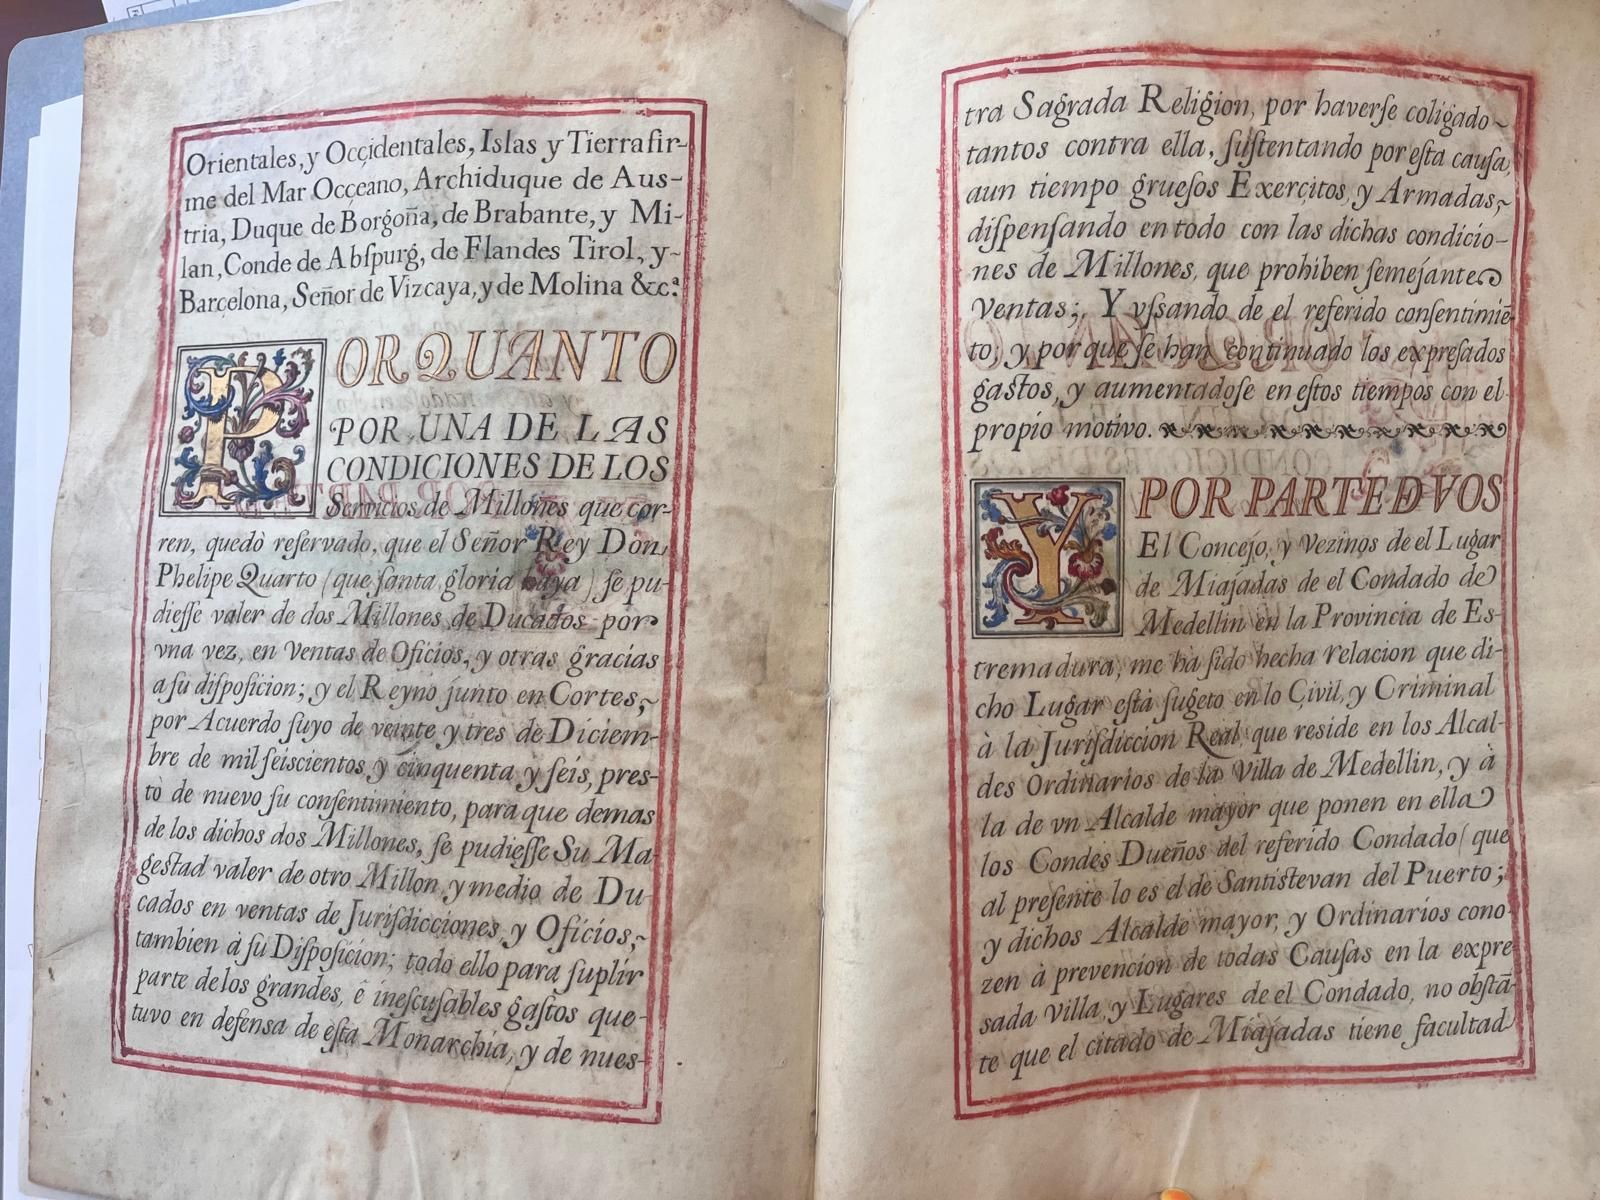 Orientales, y Occidentales, Islas y Tierrafir-
me del Mar Occeano, Archiduque de Aus-
tria, Duque de Borgoña, de Brabante, y Mi-
lan, Conde de Abſpurg, de Flandes Tirol, y-
Barcelona, Señor de Vizcaya, y de Molina &c.ª
PORQUANTO
POR UNA DE LAS
CONDICIONES DE LOS
Servicios de Millones que cor-
ren, quedò reſervado, que el Señor Rey Don,
Phelipe Quarto (que ſanta gloria haya) ſe pu-
dieſſe valer de dos Millones de Ducados por
vna vez, en Ventas de Oficios, y otras gracias
a ſu diſpoſicion; y el Reyno junto en Cortes,
por Acuerdo ſuyo de veinte y tres de Diciem-
bre de mil ſeiscientos y cinquenta y ſeis, pres-
tò de nuevo ſu conſentimiento, para que demas
de los dichos dos Millones, ſe pudieſſe Su Ma-
geſtad valer de otro Millon y medio de Du-
cados en ventas de Juriſdicciones y Oficios,
tambien à ſu Diſpoſicion; todo ello para ſuplir
parte delos grandes, ê ineſcuſables gaſtos que-
tuvo en defensa de eſta Monarchia, y de nues-
tra Sagrada Religion, por haverſe coligado
tantos contra ella, ſuſtentando por eſta cauſa,
aun tiempo grueſos Exercitos, y Armadas,
diſpenſando en todo con las dichas condicio-
nes de Millones, que prohiben ſemejantes
Ventas; Y vſsando de el referido conſentimiē-
to, y porque ſe han continuado los expreſados
gaſtos, y aumentadoſe en eſtos tiempos con el-
propio motivo.
Y POR PARTE D VOS
El Concejo, y Vezinos de el Lugar
de Miajadas de el Condado de
Medellin en la Provincia de Es-
tremadura, me ha ſido hecha relacion que di-
cho Lugar eſtà ſugeto en lo Civil, y Criminal
à la Juriſdiccion Real, que reside en los Alcal-
des Ordinarios de la Villa de Medellin, y à
la de vn Alcalde mayor que ponen en ella
los Condes Dueños del referido Condado (que
al preſente lo es el de Santiſtevan del Puerto;
y dichos Alcalde mayor, y Ordinarios cono-
zen à prevencion de todas Cauſas en la expre
sada Villa, y Lugares de el Condado, no obſtā-
te que el citado de Miajadas tiene facultad